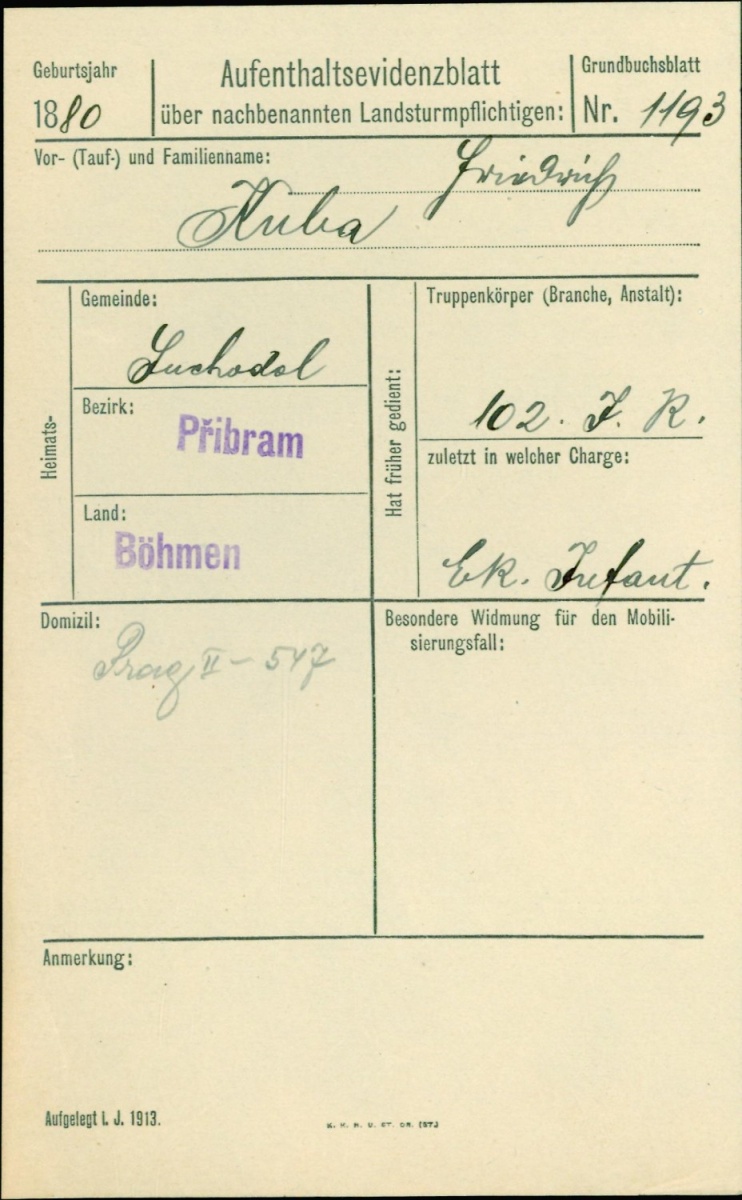 Geburtsjahr
1880
Aufenthaltsevidenzblatt
über nachbenannten Landsturmpflichtigen:
Grundbuchsblatt
Nr. 1193
Vor- (Tauf-) und Familienname:
Friedrich
Kuba
Heimats-
Gemeinde:
Suchodol
Bezirk:
Přibram
Land:
Böhmen
Hat früher gedient:
Truppenkörper (Branche, Anstalt):
102. I. R.
zuletzt in welcher Charge:
Ek. Infant.
Domizil:
Prag II - 547
Besondere Widmung für den Mobili-
sierungsfall:
Anmerkung:
Aufgelegt i. J. 1913.